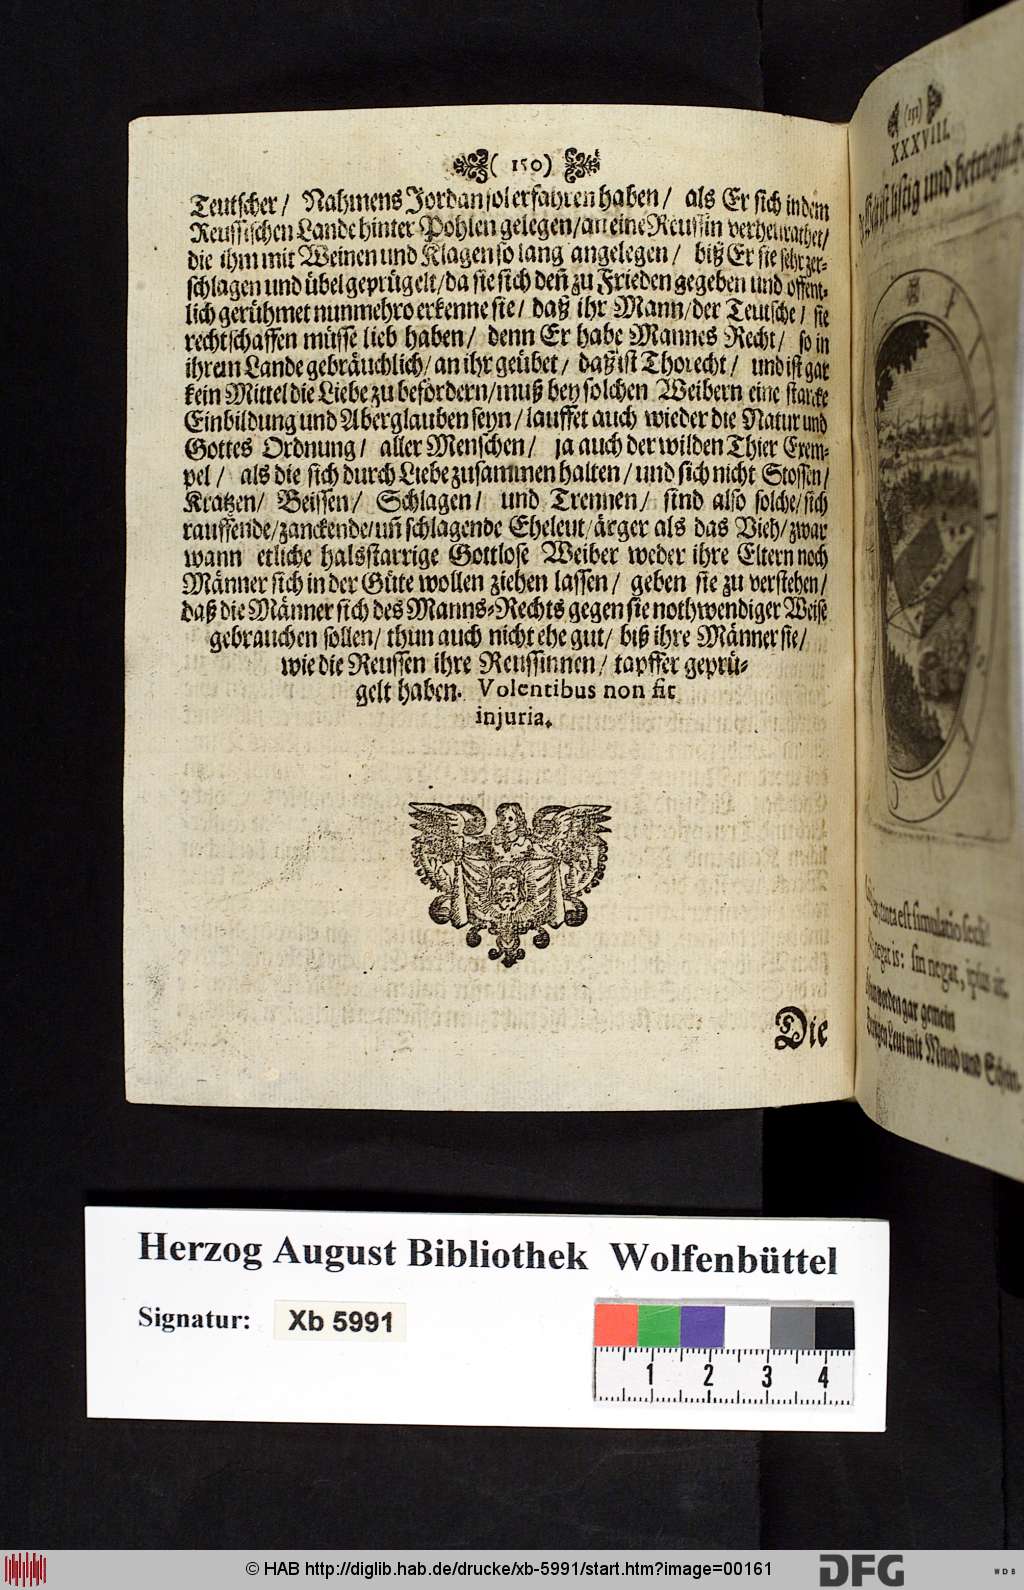 ( 150 )
Teutscher / Nahmens Jordan sol erfahren haben / als Er sich in dem
Reussischen Lande hinter Pohlen gelegen / an eine Reussin verheurathet /
die ihm mit Weinen und Klagen so lang angelegen / biß Er sie sehr zer-
schlagen und übel geprügelt / da sie sich deñ zu Frieden gegeben und offent-
lich gerühmet nunmehro erkenne sie / daß ihr Mann / der Teutsche / sie
rechtschaffen müsse lieb haben / denn Er habe Mannes Recht / so in
ihrem Lande gebräuchlich / an ihr geübet / daß ist Thorecht / und ist gar
kein Mittel die Liebe zu befördern / muß bey solchen Weibern eine starcke
Einbildung und Aberglauben seyn / lauffet auch wieder die Natur und
Gottes Ordnung / aller Menschen / ja auch der wilden Thier Exem-
pel / als die sich durch Liebe zusammen halten / und sich nicht Stossen /
Kratzen / Beissen / Schlagen / und Trennen / sind also solche / sich
rauffende / zanckende / uñ schlagende Eheleut / ärger als das Vieh / zwar
wann etliche halsstarrige Gottlose Weiber weder ihre Eltern noch
Männer sich in der Güte wollen ziehen lassen / geben sie zu verstehen /
daß die Männer sich des Manns-Rechts gegen sie nothwendiger Weise
gebrauchen sollen / thun auch nicht ehe gut / biß ihre Männer sie /
wie die Reussen ihre Reussinnen / tapffer geprü-
gelt haben. Volentibus non fit
injuria.
Die
(151)
XXXVIII.
listig und betrieglich
tanta est simulatio sexûs
negat is: sin negat, ipsus ait.
worden gar gemein
Leut mit Mund und Schein.
Herzog August Bibliothek Wolfenbüttel
Signatur: Xb 5991
1 2 3 4
© HAB http://diglib.hab.de/drucke/xb-5991/start.htm?image=00161
DFG
WDB